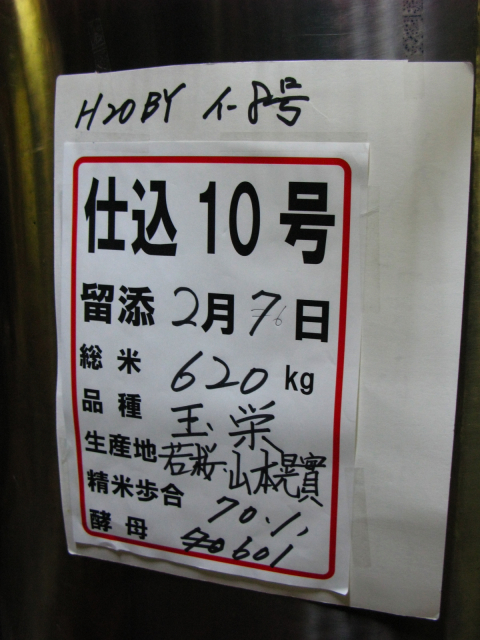 H20BY イ-8号
仕込10号
留添 2月7日
総米 620kg
品種 玉栄
生産地 若桜、山本晃實
精米歩合 70.1,
酵母 601